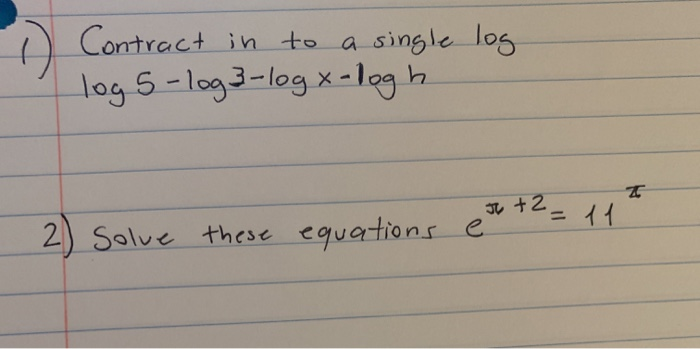 1) Contract in to a single log
log 5 - log 3 - log x - log h
2) Solve these equations e^{x+2} = 11^x